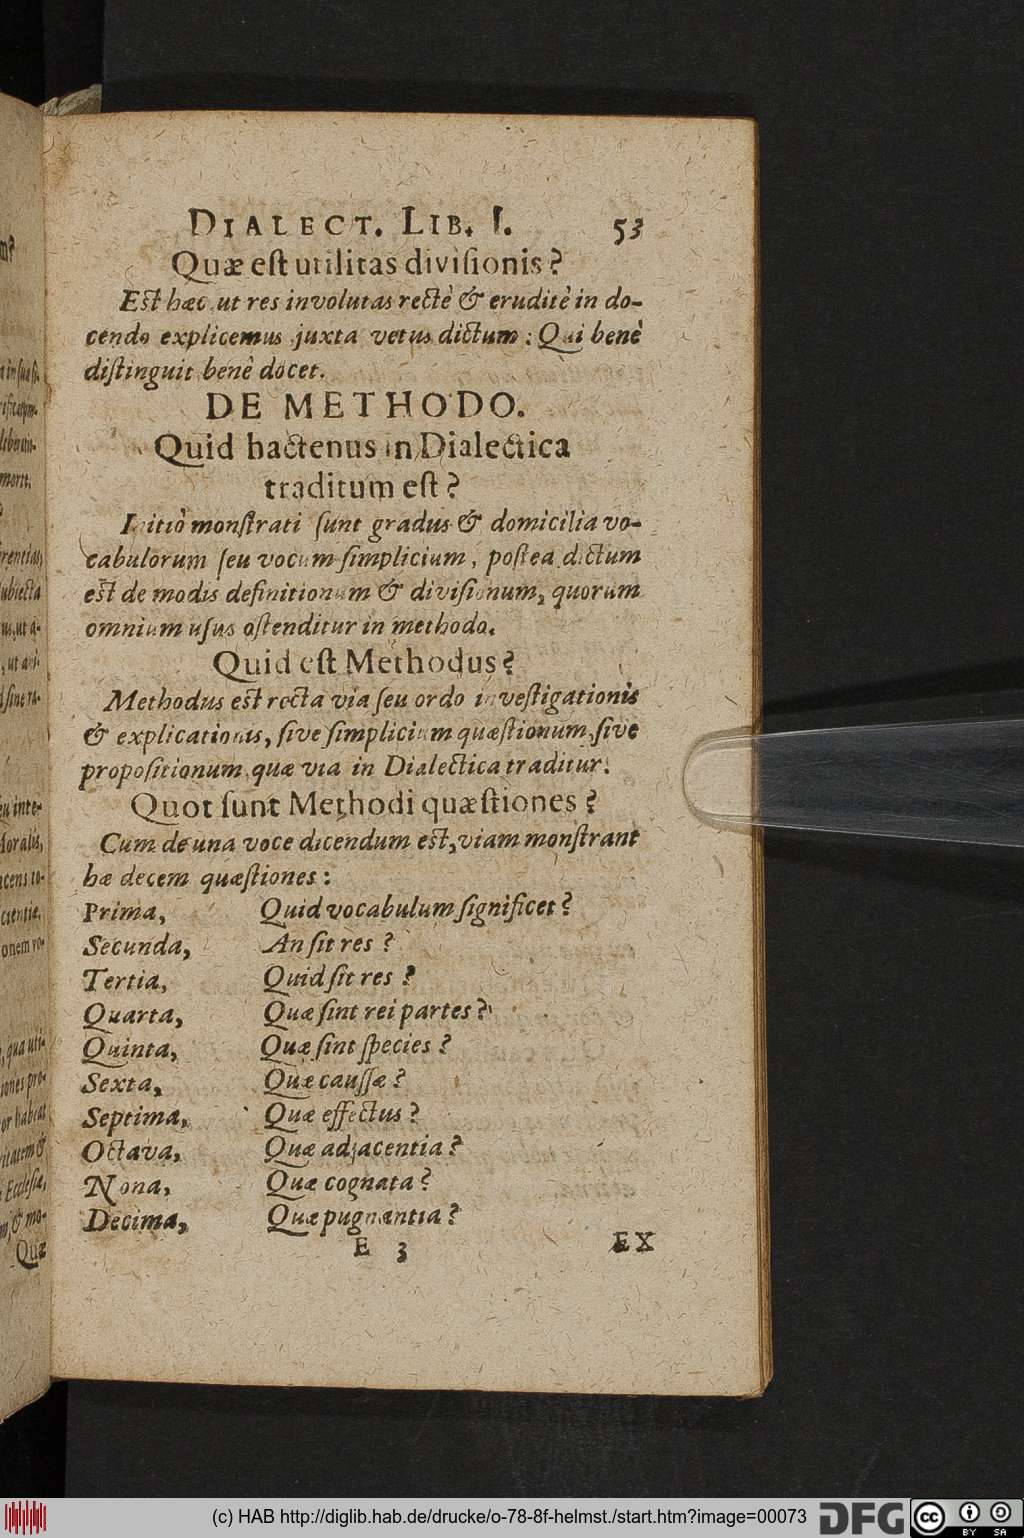 DIALECT. LIB. I. 53
Quæ eſt utilitas diviſionis?
Est hæc, ut res involutas rectè & eruditè in do-
cendo explicemus juxta vetus dictum: Qui benè
diſtinguit, benè docet.
DE METHODO.
Quid hactenus in Dialectica
traditum eſt?
Initiò monſtrati ſunt gradus & domicilia vo-
cabulorum ſeu vocum ſimplicium, poſtea dictum
est de modis definitionum & diviſionum, quorum
omnium uſus oſtenditur in methodo.
Quid eſt Methodus?
Methodus est recta via ſeu ordo inveſtigationis
& explicationis, ſive ſimplicium quæſtionum, ſive
propoſitionum, quæ via in Dialectica traditur.
Quot ſunt Methodi quæſtiones?
Cum de una voce dicendum est, viam monſtrant
hæ decem quæſtiones:
Prima, Quid vocabulum ſignificet?
Secunda, An ſit res?
Tertia, Quid ſit res?
Quarta, Quæ ſint rei partes?
Quinta, Quæ ſint ſpecies?
Sexta, Quæ cauſſæ?
Septima, Quæ effectus?
Octava, Quæ adjacentia?
Nona, Quæ cognata?
Decima, Quæ pugnantia?
E 3 EX
Quæ
(c) HAB http://diglib.hab.de/drucke/o-78-8f-helmst./start.htm?image=00073
DFG
cc
BY SA